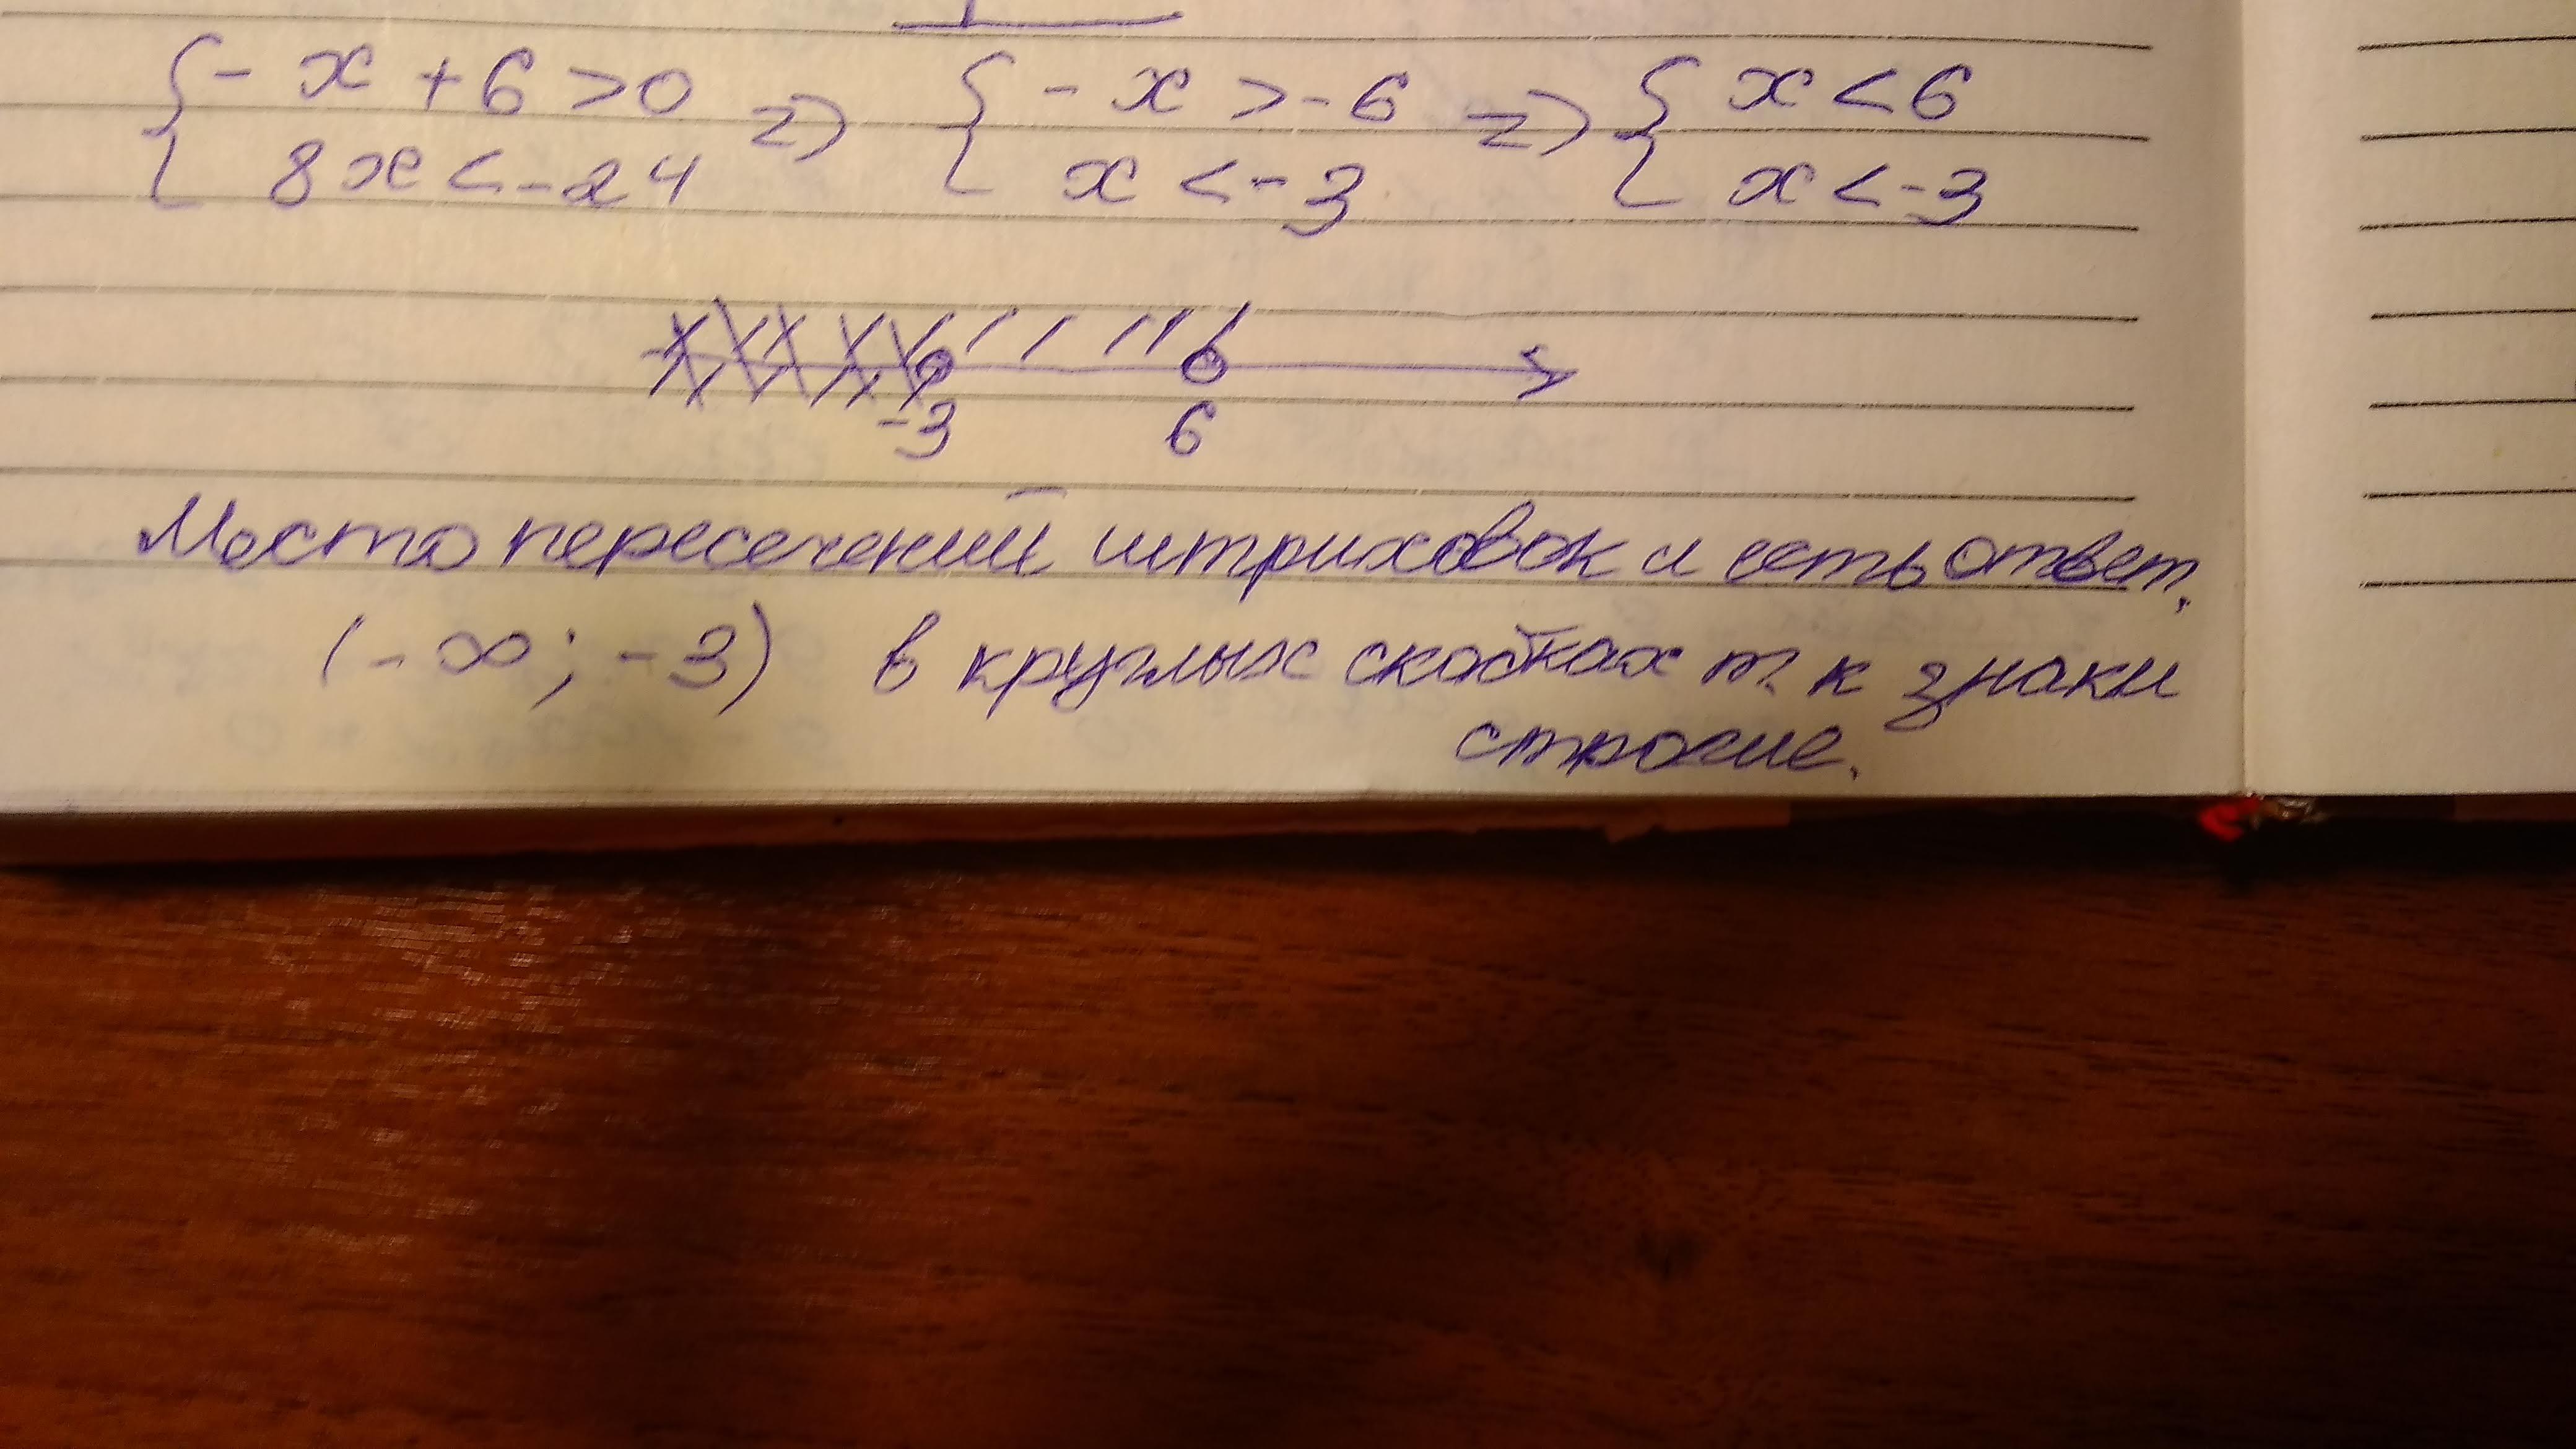 { - x + 6 > 0 => { - x > - 6 => { x < 6
8x < - 24 x < - 3 x < - 3
-3 6
Место пересечений штриховок и есть ответ.
(- ∞ ; - 3) в круглых скобках т. к знаки
строгие.